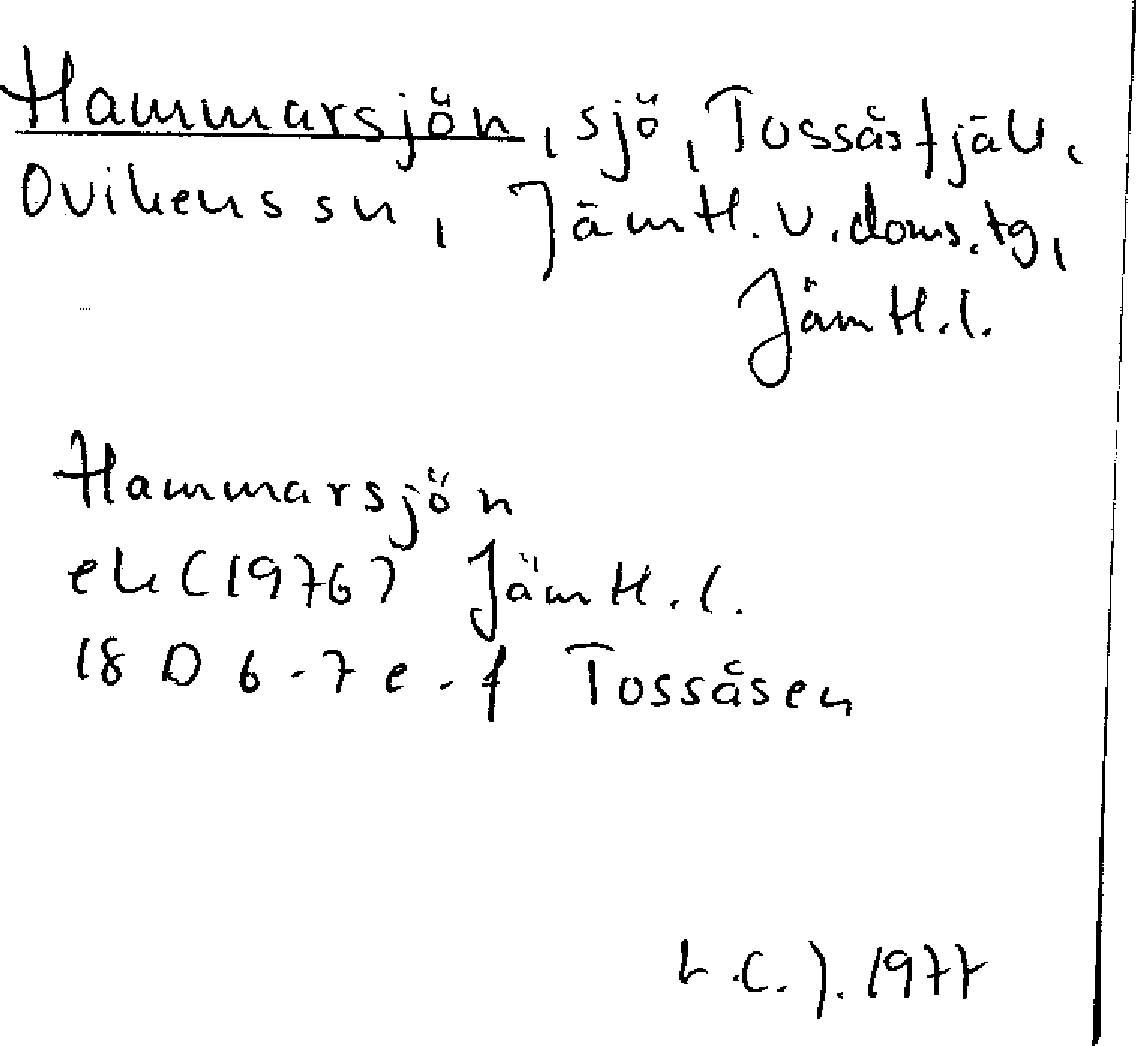 Hammarsjön, sjö, Tossåsfjäll.
Ovikens sn, Jämtl. v. doms. tg,
Jämtl. l.
Hammarsjön
ek (1976) Jämtl. l.
18 D 6-7 e-f Tossåsen
L.C.J. 1977